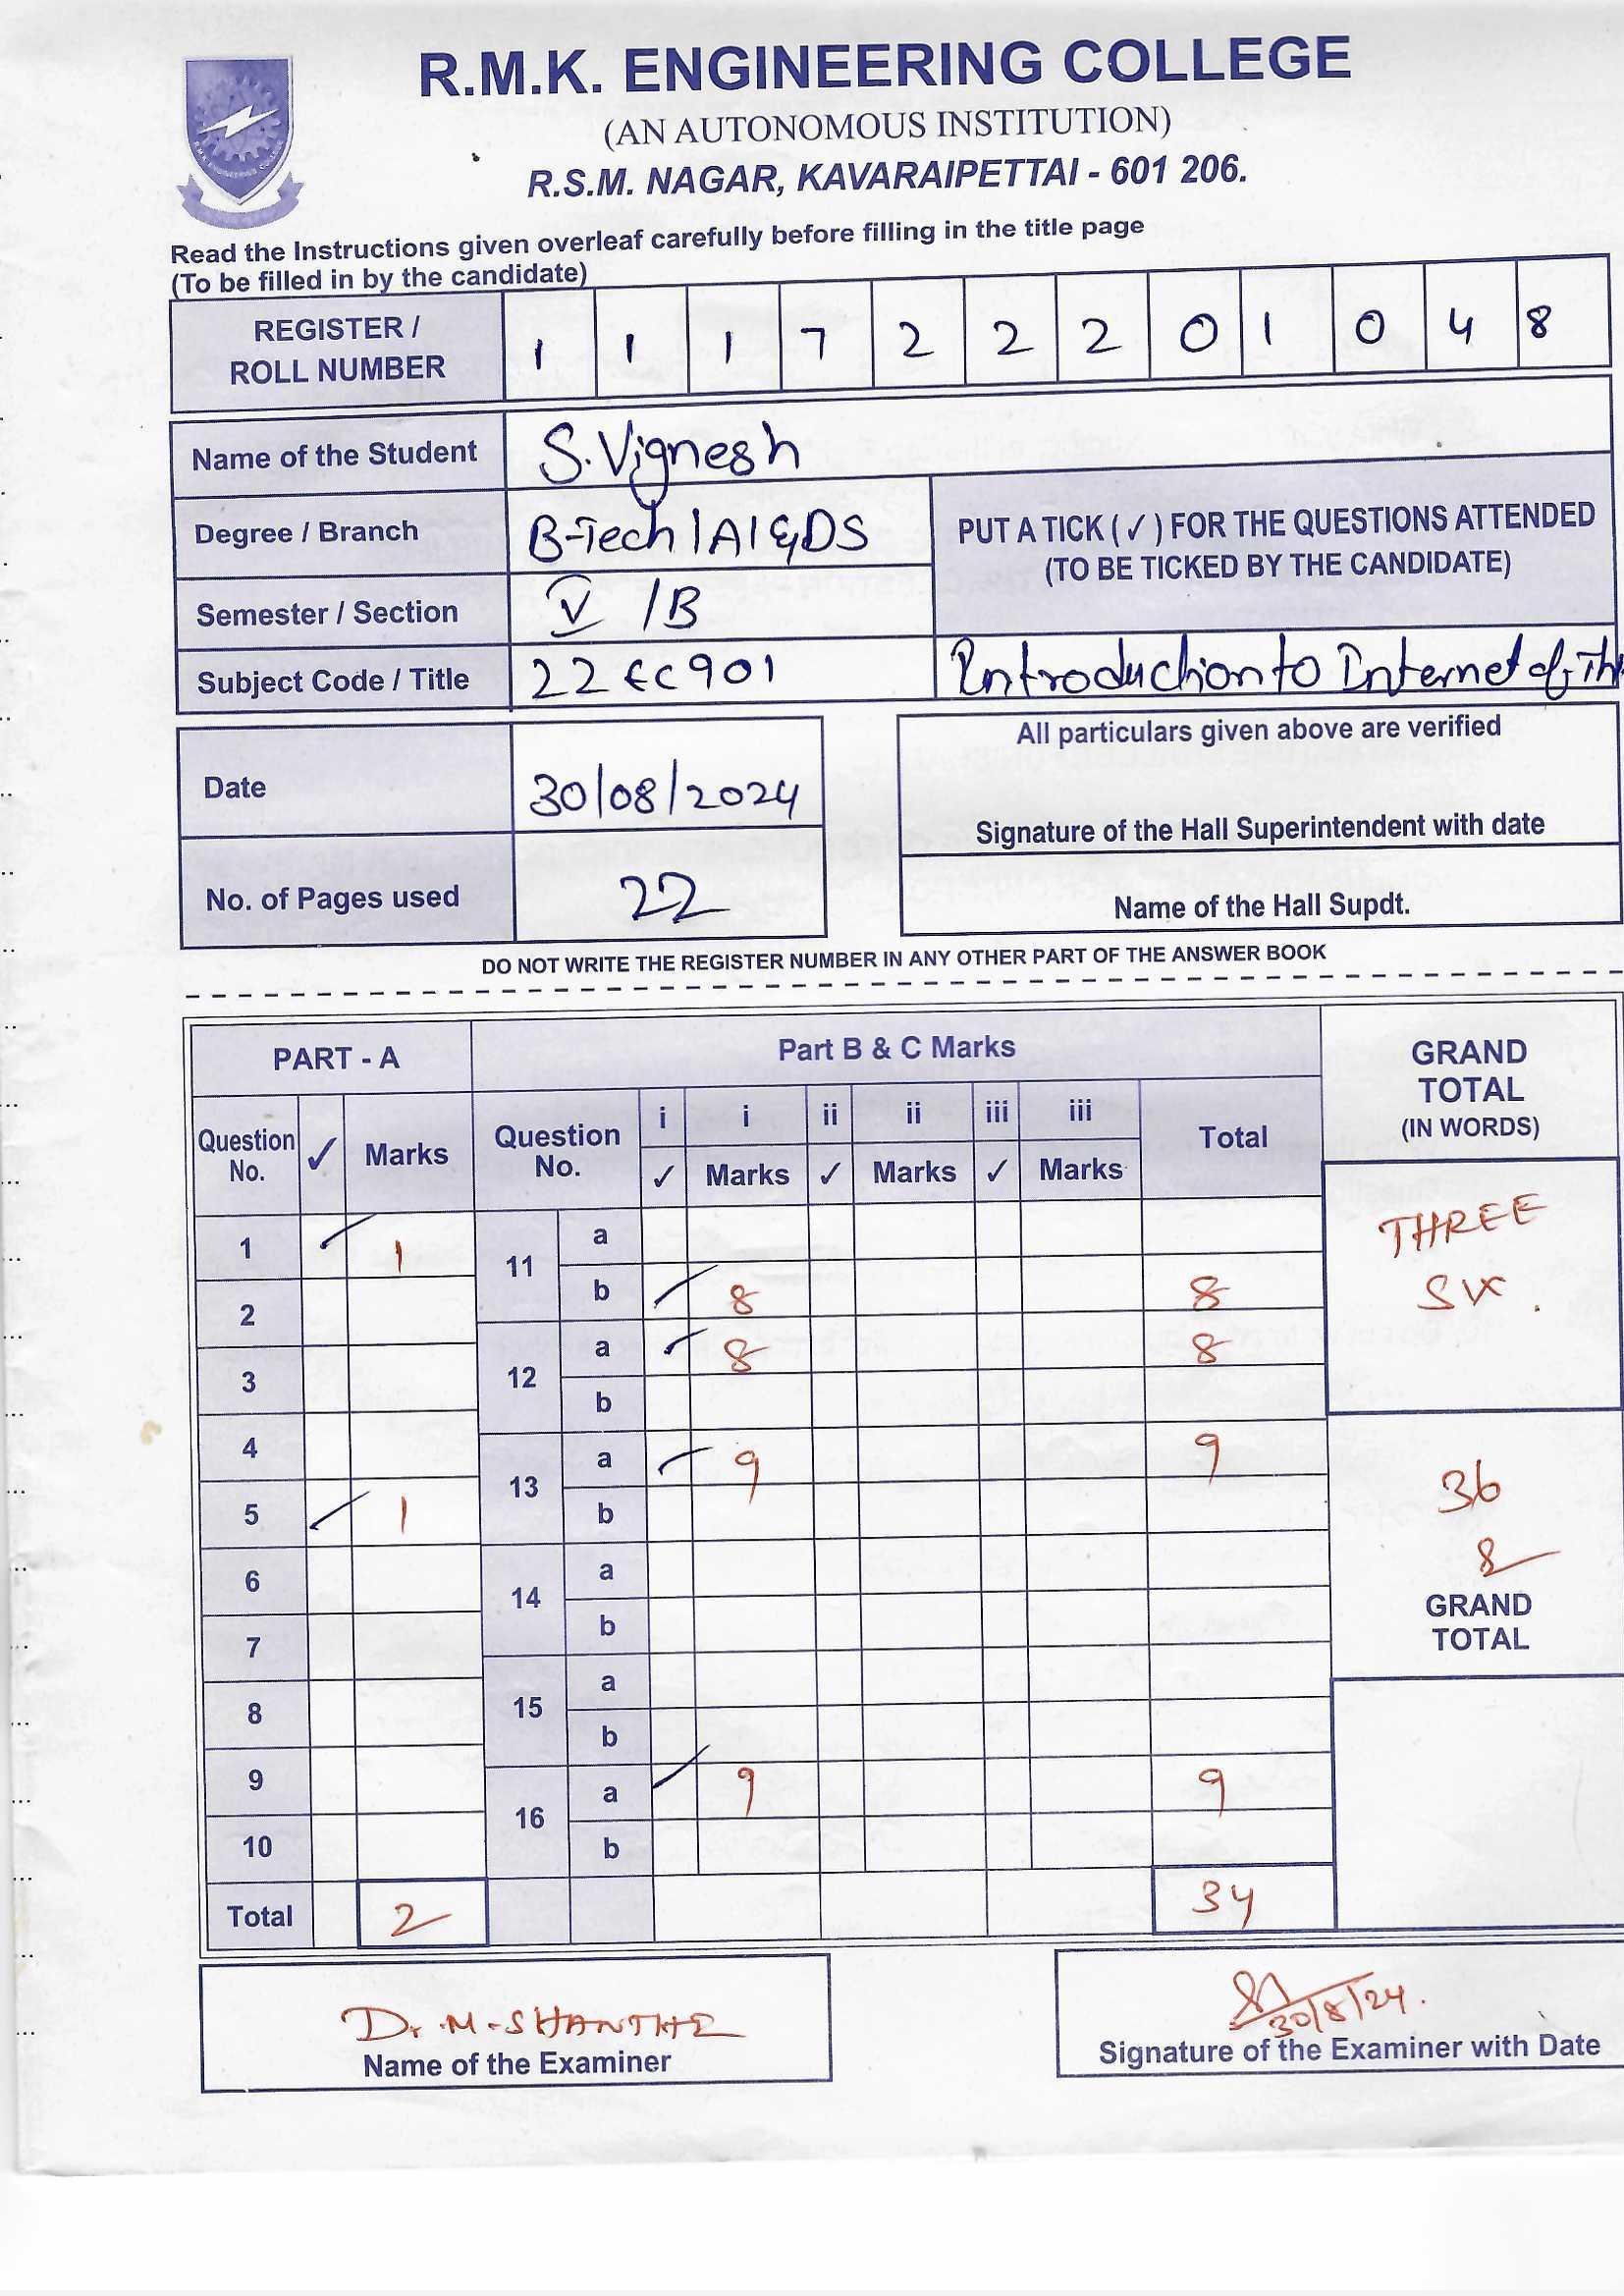 R.M.K. ENGINEERING COLLEGE
(AN AUTONOMOUS INSTITUTION)
R.S.M. NAGAR, KAVARAIPETTAI - 601 206.
Read the Instructions given overleaf carefully before filling in the title page
(To be filled in by the candidate)
REGISTER / ROLL NUMBER 1 1 1 7 2 2 2 0 1 0 4 8
Name of the Student S.Vignesh
Degree / Branch B-Tech | AI & DS
PUT A TICK (✓) FOR THE QUESTIONS ATTENDED
(TO BE TICKED BY THE CANDIDATE)
Semester / Section V / B
Subject Code / Title 22EC901 Introduction to Internet of Th
All particulars given above are verified
Date 30/08/2024
Signature of the Hall Superintendent with date
No. of Pages used 22
Name of the Hall Supdt.
DO NOT WRITE THE REGISTER NUMBER IN ANY OTHER PART OF THE ANSWER BOOK
PART - A Part B & C Marks GRAND TOTAL (IN WORDS)
Question No. ✓ Marks Question No. i ✓ i Marks ii ✓ ii Marks iii ✓ iii Marks Total
1 ✓ 1 11 a
THREE
2 b ✓ 8 8
SIX.
3 12 a ✓ 8 8
b
4 13 a ✓ 9 9
36
5 ✓ 1 b
6 14 a
GRAND TOTAL
7 b
8 15 a
b
9 16 a ✓ 9 9
10 b
Total 2 34
Dr.M.SHANTHI
30/8/24.
Name of the Examiner
Signature of the Examiner with Date